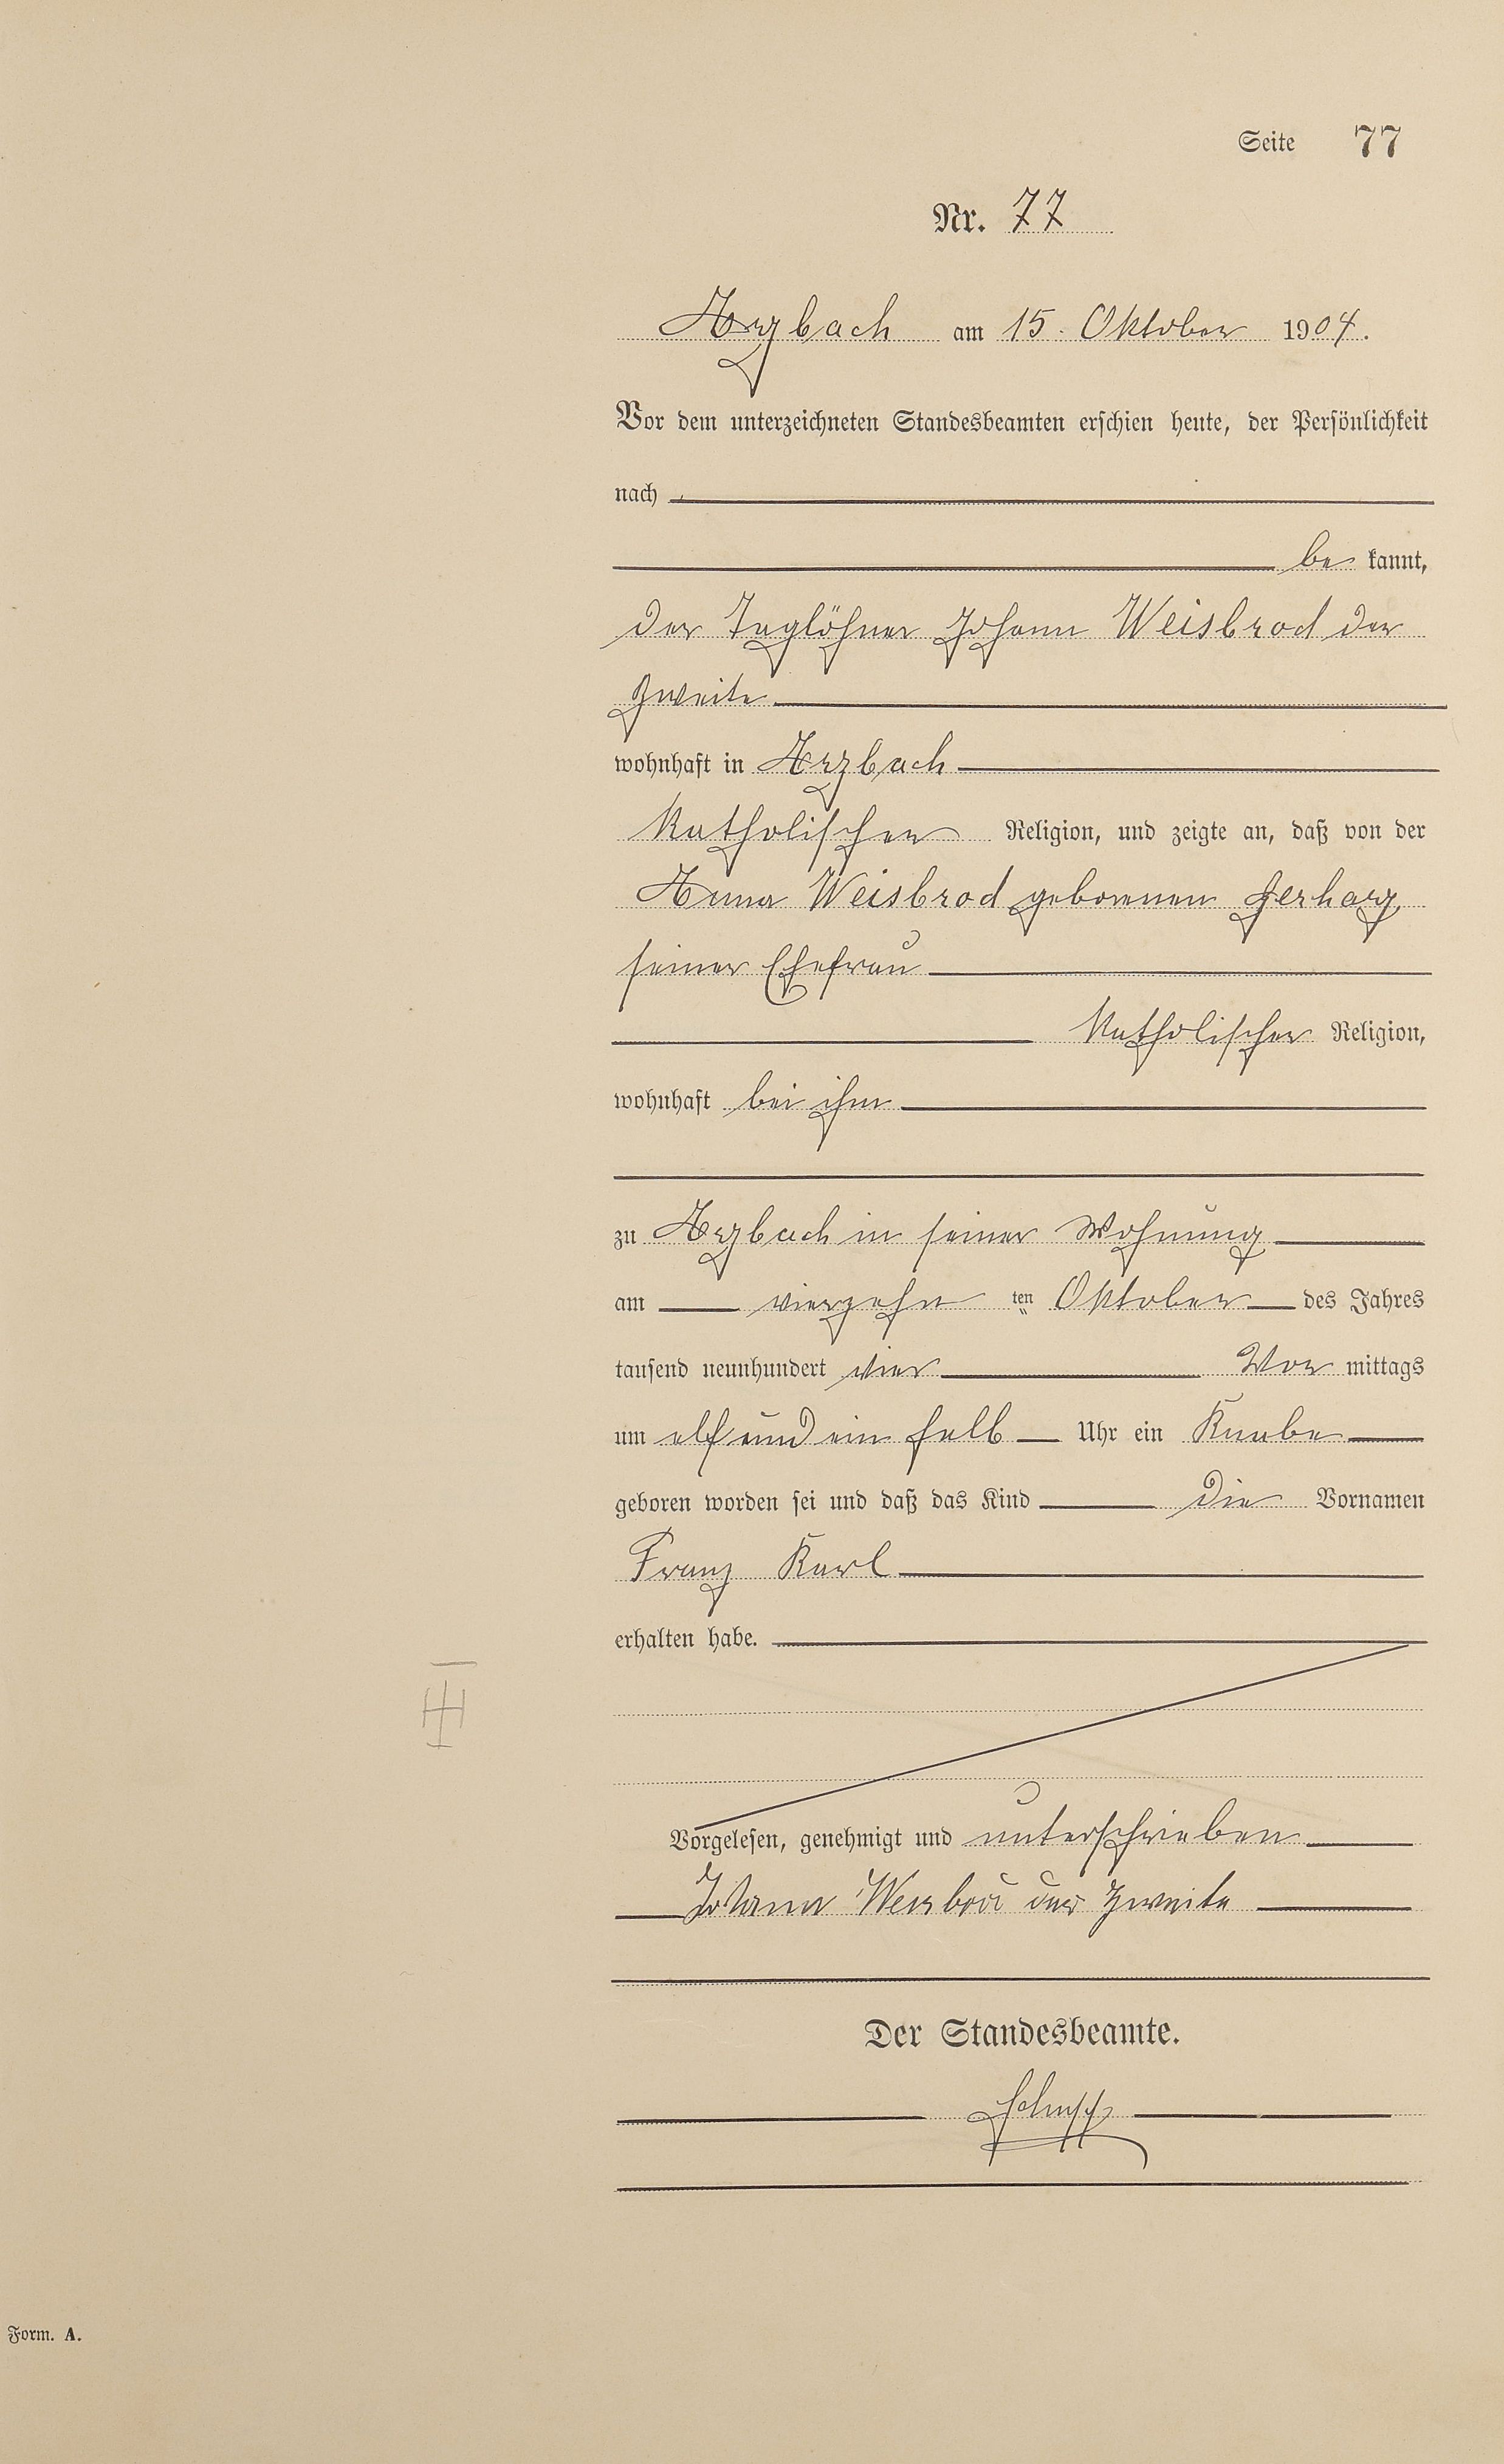 Seite 77
Nr. 77
Arzbach am 15. Oktober 1904.
Vor dem unterzeichneten Standesbeamten erschien heute, der Persönlichkeit
nach
be kannt,
der Taglöhner Johann Weisbrod der
Zweite
wohnhaft in Arzbach
katholischer Religion, und zeigte an, daß von der
Anna Weisbrod geborenen Gerharz
seiner Ehefrau
katholischer Religion,
wohnhaft bei ihm
zu Arzbach in seiner Wohnung
am vierzehn ten Oktober des Jahres
tausend neunhundert vier Vor mittags
um elf und ein halb Uhr ein Knabe
geboren worden sei und daß das Kind die Vornamen
Franz Karl
erhalten habe.
Vorgelesen, genehmigt und unterschrieben
Johann Weisbrod der Zweite
Der Standesbeamte.
Form. A.